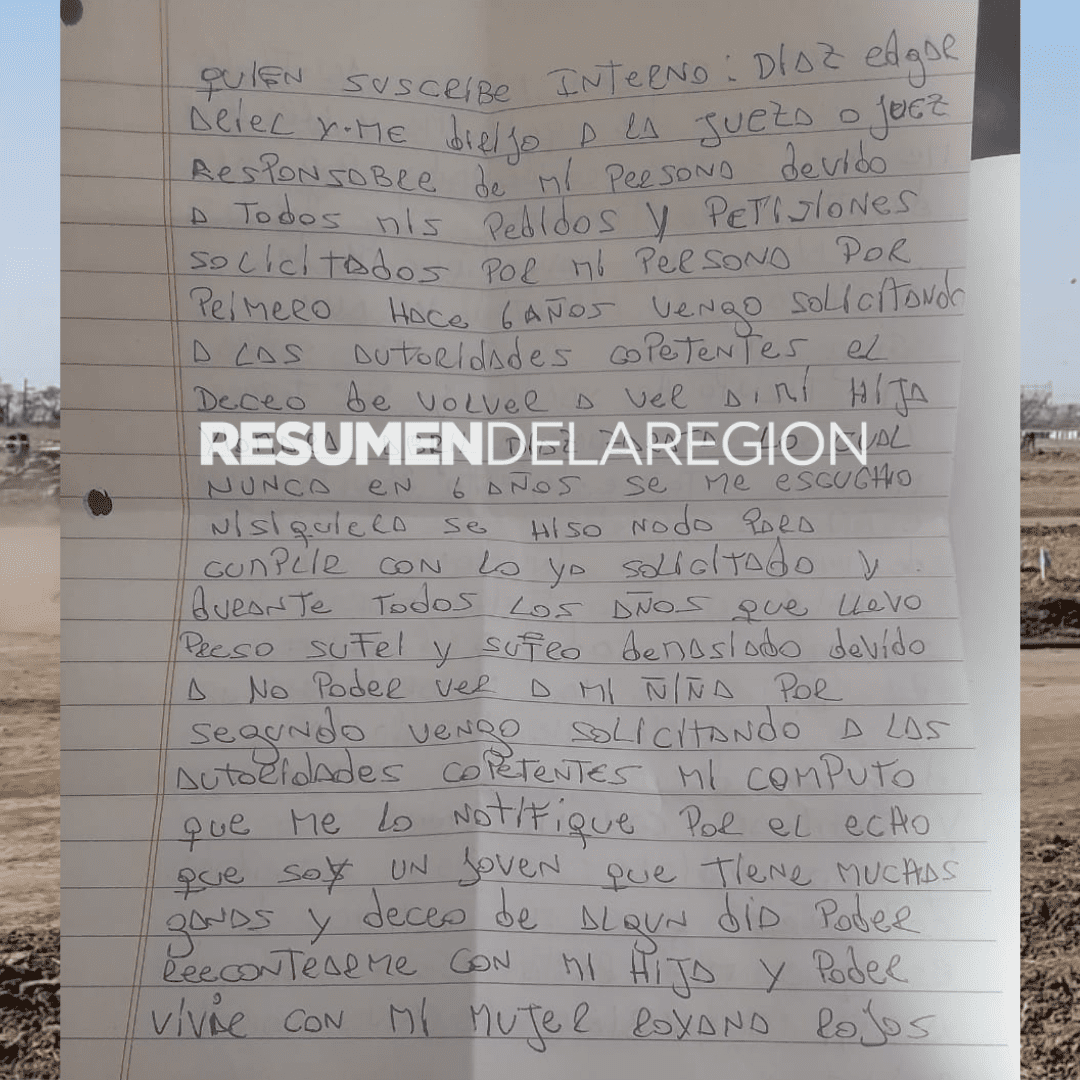 QUIEN SUSCRIBE INTERNO: DIAZ edgar
Ariel Y.ME dirijo A LA JUEZA O JUEZ
RESPONSABRE de mi PERSONA devido
A Todos mis Pedidos y PETISIONES
SOLICITADOS POR mi PERSONA POR
PRIMERO HACE 6 AÑOS VENGO SOLICITANDO
A LAS AUTORIDADES COPETENTES el
DECEO de VOLVER A VER A.MI HIJA
RESUMENDELAREGION
NUNCA EN 6 AÑOS SE ME ESCUCHO
NISIQUIERA SE HISO NADA PARA
CUMPLIR CON LO YA SOLICITADO Y
DURANTE TODOS LOS AÑOS QUE LLEVO
PRESO SUFRI y SUFRO demasiado devido
A NO PODER VER A MI ÑIÑA POR
SEGUNDO VENGO SOLICITANDO A LAS
AUTORIDADES COPETENTES MI COMPUTO
QUE ME LO NOTIFIQUE POR EL ECHO
QUE SOY UN JOVEN QUE TIENE MUCHAS
GANAS Y DECEO DE ALGUN DIA PODER
REECONTRARME CON MI HIJA Y PODER
VIVIR CON MI MUJER ROXANA ROJAS